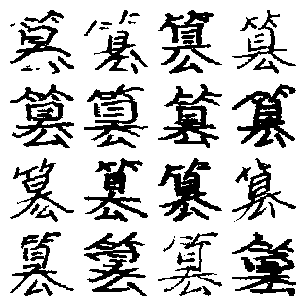 篡篡篡篡
篡篡篡篡
篡篡篡篡
篡篡篡篡